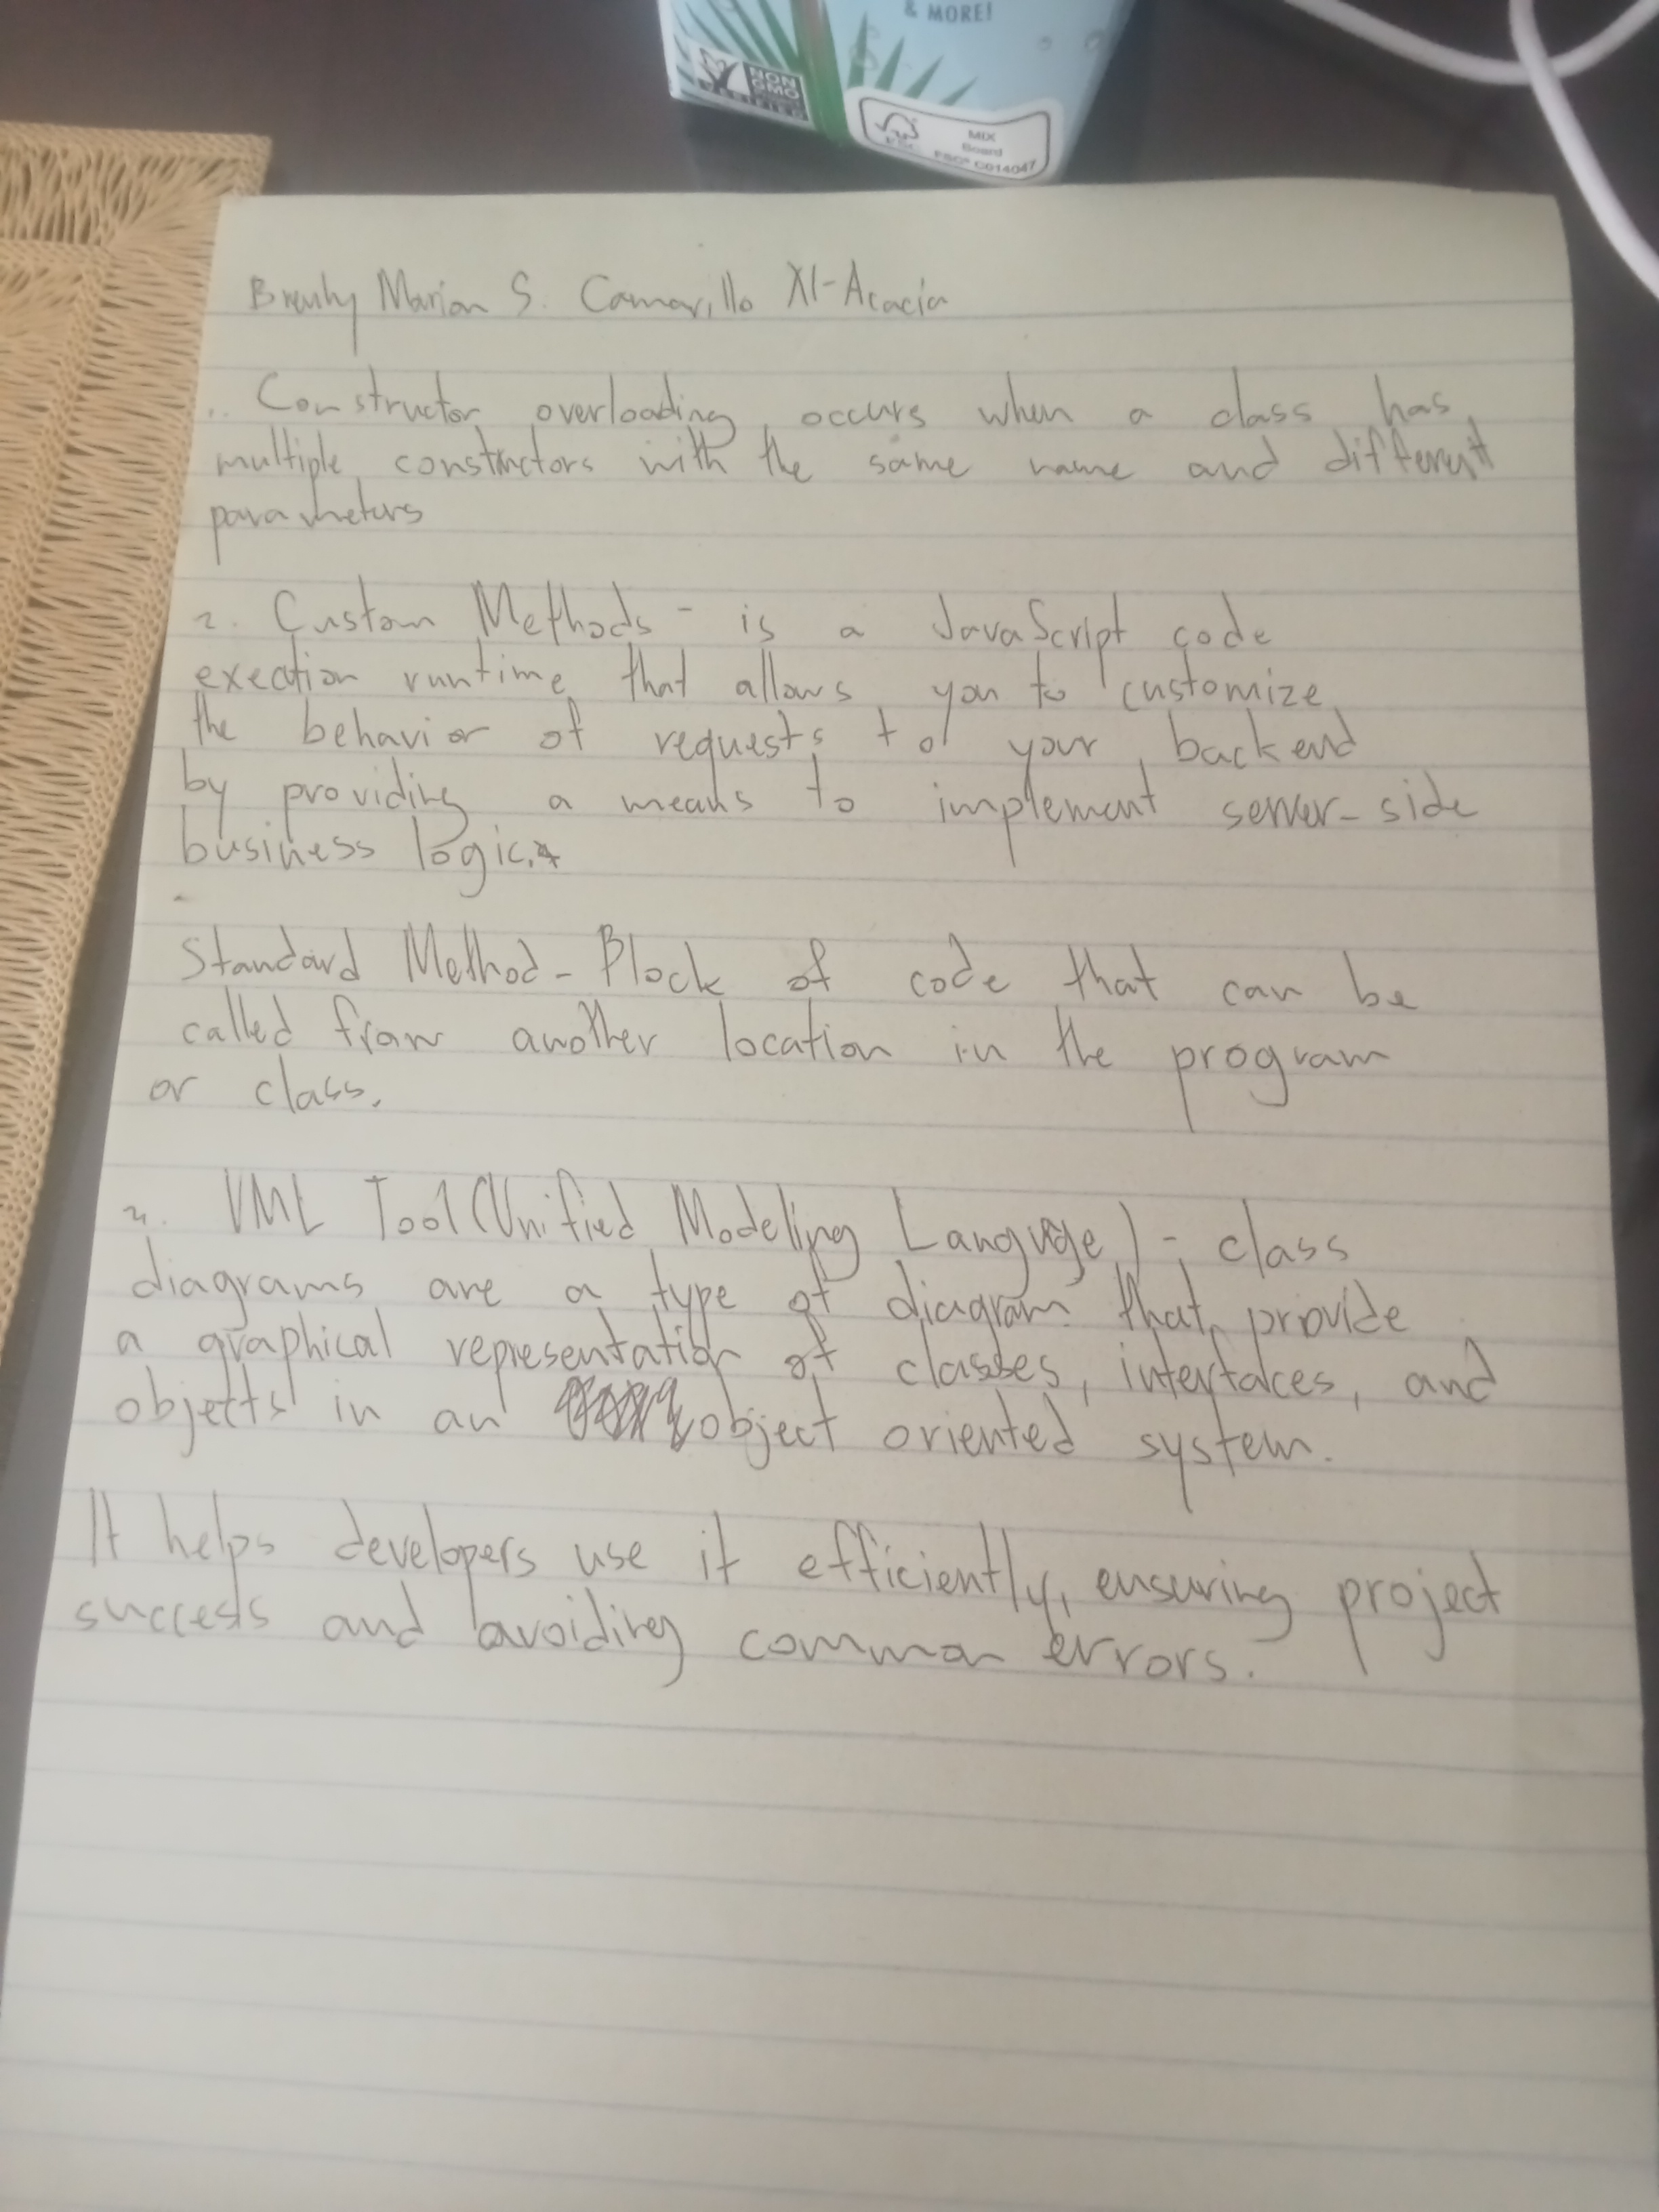 & MORE!
NON
GMO
VERIFIED
MIX
Board
FSC
FSC® C014047
Marion S. Camarillo XI-Acacia
1. Constructor overloading occurs when a class has
multiple constructors with the same name and different
parameters
2. Custom Methods - is a JavaScript code
exection runtime that allows you to customize
the behavior of requests to your backend
by providing a means to implement server-side
business logic.
Standard Method - Block of code that can be
called from another location in the program
or class.
3. UML Tool (Unified Modeling Language) - class
diagrams are a type of diagram that provide
a graphical representation of classes, interfaces, and
objects in an object oriented system.
It helps developers use it efficiently, ensuring project
success and avoiding common errors.